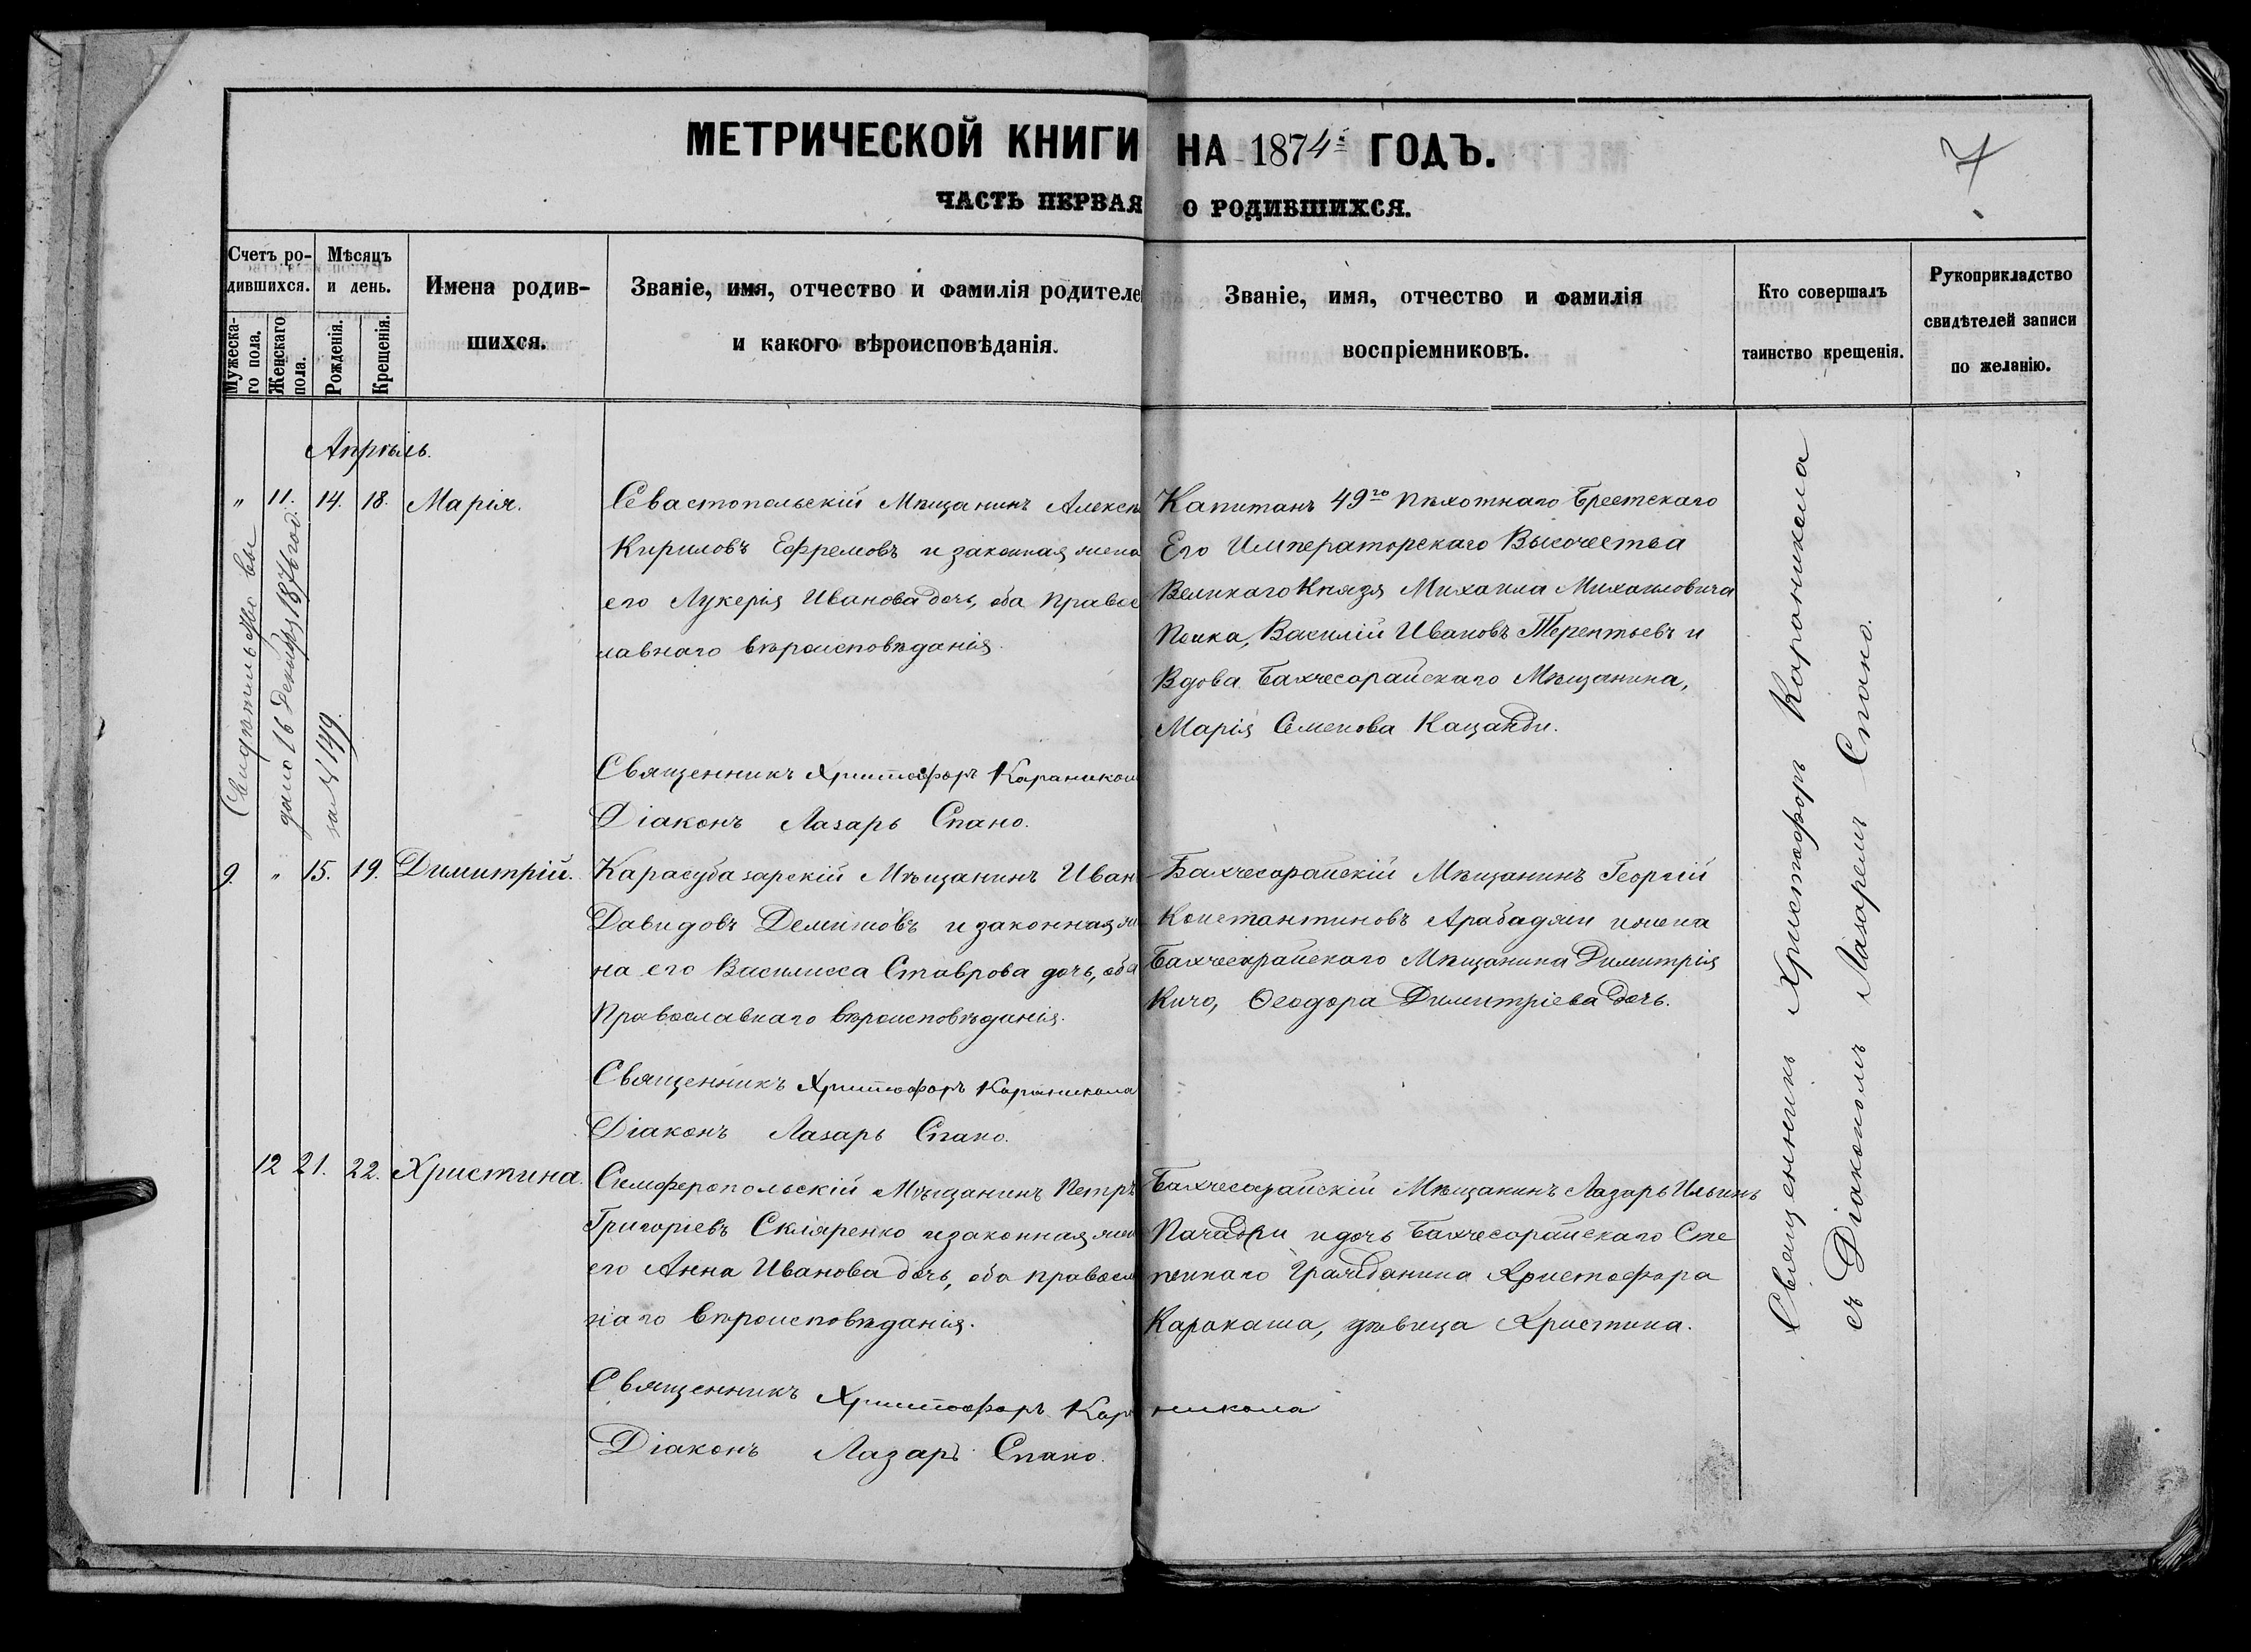 МЕТРИЧЕСКОЙ КНИГИ НА 1874й ГОДЪ.
7
ЧАСТЬ ПЕРВАЯ О РОДИВШИХСЯ.
Счетъ ро-
дившихся.
Мужеска-
го пола.
Женскаго
пола.
Мѣсяцъ
и день.
Рожденія.
Крещенія.
Имена родив-
шихся.
Званіе, имя, отчество и фамилія родителе
и какого вѣроисповѣданія.
Званіе, имя, отчество и фамилія
воспріемниковъ.
Кто совершалъ
таинство крещенія.
Рукоприкладство
свидѣтелей записи
по желанію.
Апрѣль.
" 11. 14. 18. Марія.
Севастопольскій Мѣщанинъ Алексѣ
Кириловъ Ефремовъ и законная жена
его Лукерія Иванова дочь, оба Правос
лавнаго вѣроисповѣданія.
Священникъ Христофоръ Караникол
Діаконъ Лазарь Спано.
Капитанъ 49го Пѣхотнаго Брестскаго
Его Императорскаго Высочества
Великаго Князя Михаила Михаиловича
Полка, Василій Ивановъ Терентьевъ и
Вдова Бахчесарайскаго Мѣщанина,
Марія Семенова Кацанди.
Свидѣтельство вы
дано 16 Декабря 1876 год.
за № 149.
9. " 15. 19. Димитрій.
Карасубазарскій Мѣщанинъ Иван
Давидовъ Демишовъ и законная же
на его Василисса Ставрова дочь, оба
Православнаго вѣроисповѣданія.
Священникъ Христофоръ Караникола
Діаконъ Лазарь Спано.
Бахчесарайскій Мѣщанинъ Георгій
Константиновъ Арабаджи и жена
Бахчесарайскаго Мѣщанина Димитрія
Кичо, Ѳеодора Димитріева дочь.
12 21. 22. Христина.
Симферопольскій Мѣщанинъ Петръ
Григоріевъ Скляренко и законная жен
его Анна Иванова дочь, оба правосл
наго вѣроисповѣданія.
Священникъ Христофоръ Кара никола
Діаконъ Лазарь Спано.
Бахчесарайскій Мѣщанинъ Лазарь Ильинъ
Пачаджи и дочь Бахчесарайскаго Сте
пеннаго Гражданина Христофора
Каракаша, дѣвица Христина.
Священникъ Христофоръ Караникола
съ Діакономъ Лазаремъ Спано.